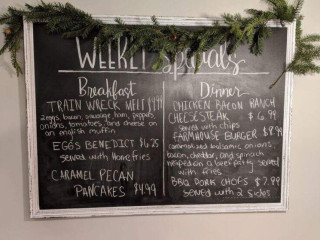 WEEKLY Specials
Breakfast
TRAIN WRECK MELT
2 eggs, bacon, sausage, ham, peppers,
onions, tomatoes, and cheese on
an english muffin
EGGS BENEDICT $6.25
served with homefries
CARAMEL PECAN
PANCAKES $4.99
Dinner
CHICKEN BACON RANCH
CHEESESTEAK $6.99
served with chips
FARMHOUSE BURGER $8.99
caramelized balsamic onions,
bacon, cheddar, and spinach
on a beef patty served
with fries
BBQ PORK CHOPS $7.99
served with 2 sides